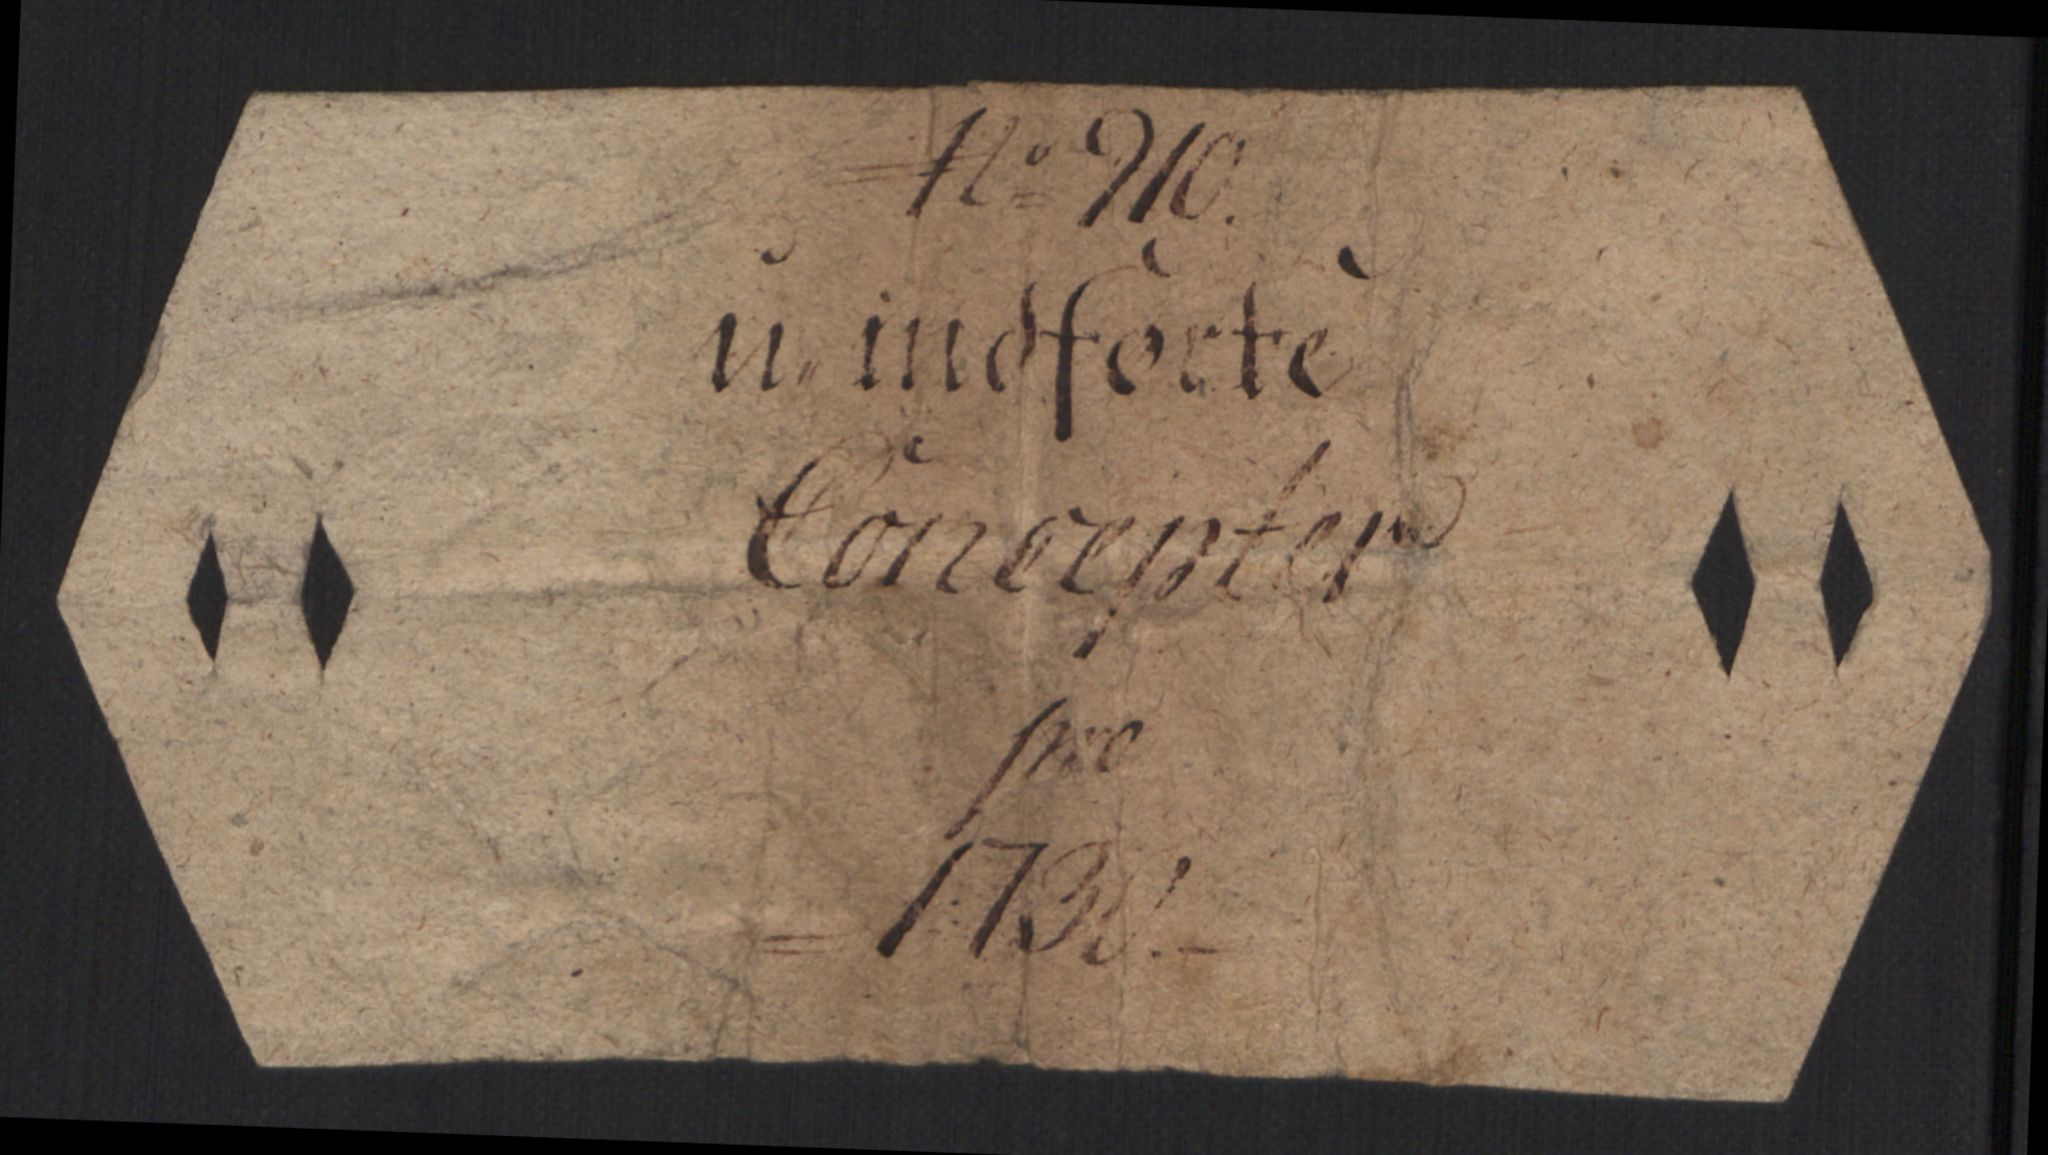 = No 910.
u-indførte
Concepter
pro
= 1738. -